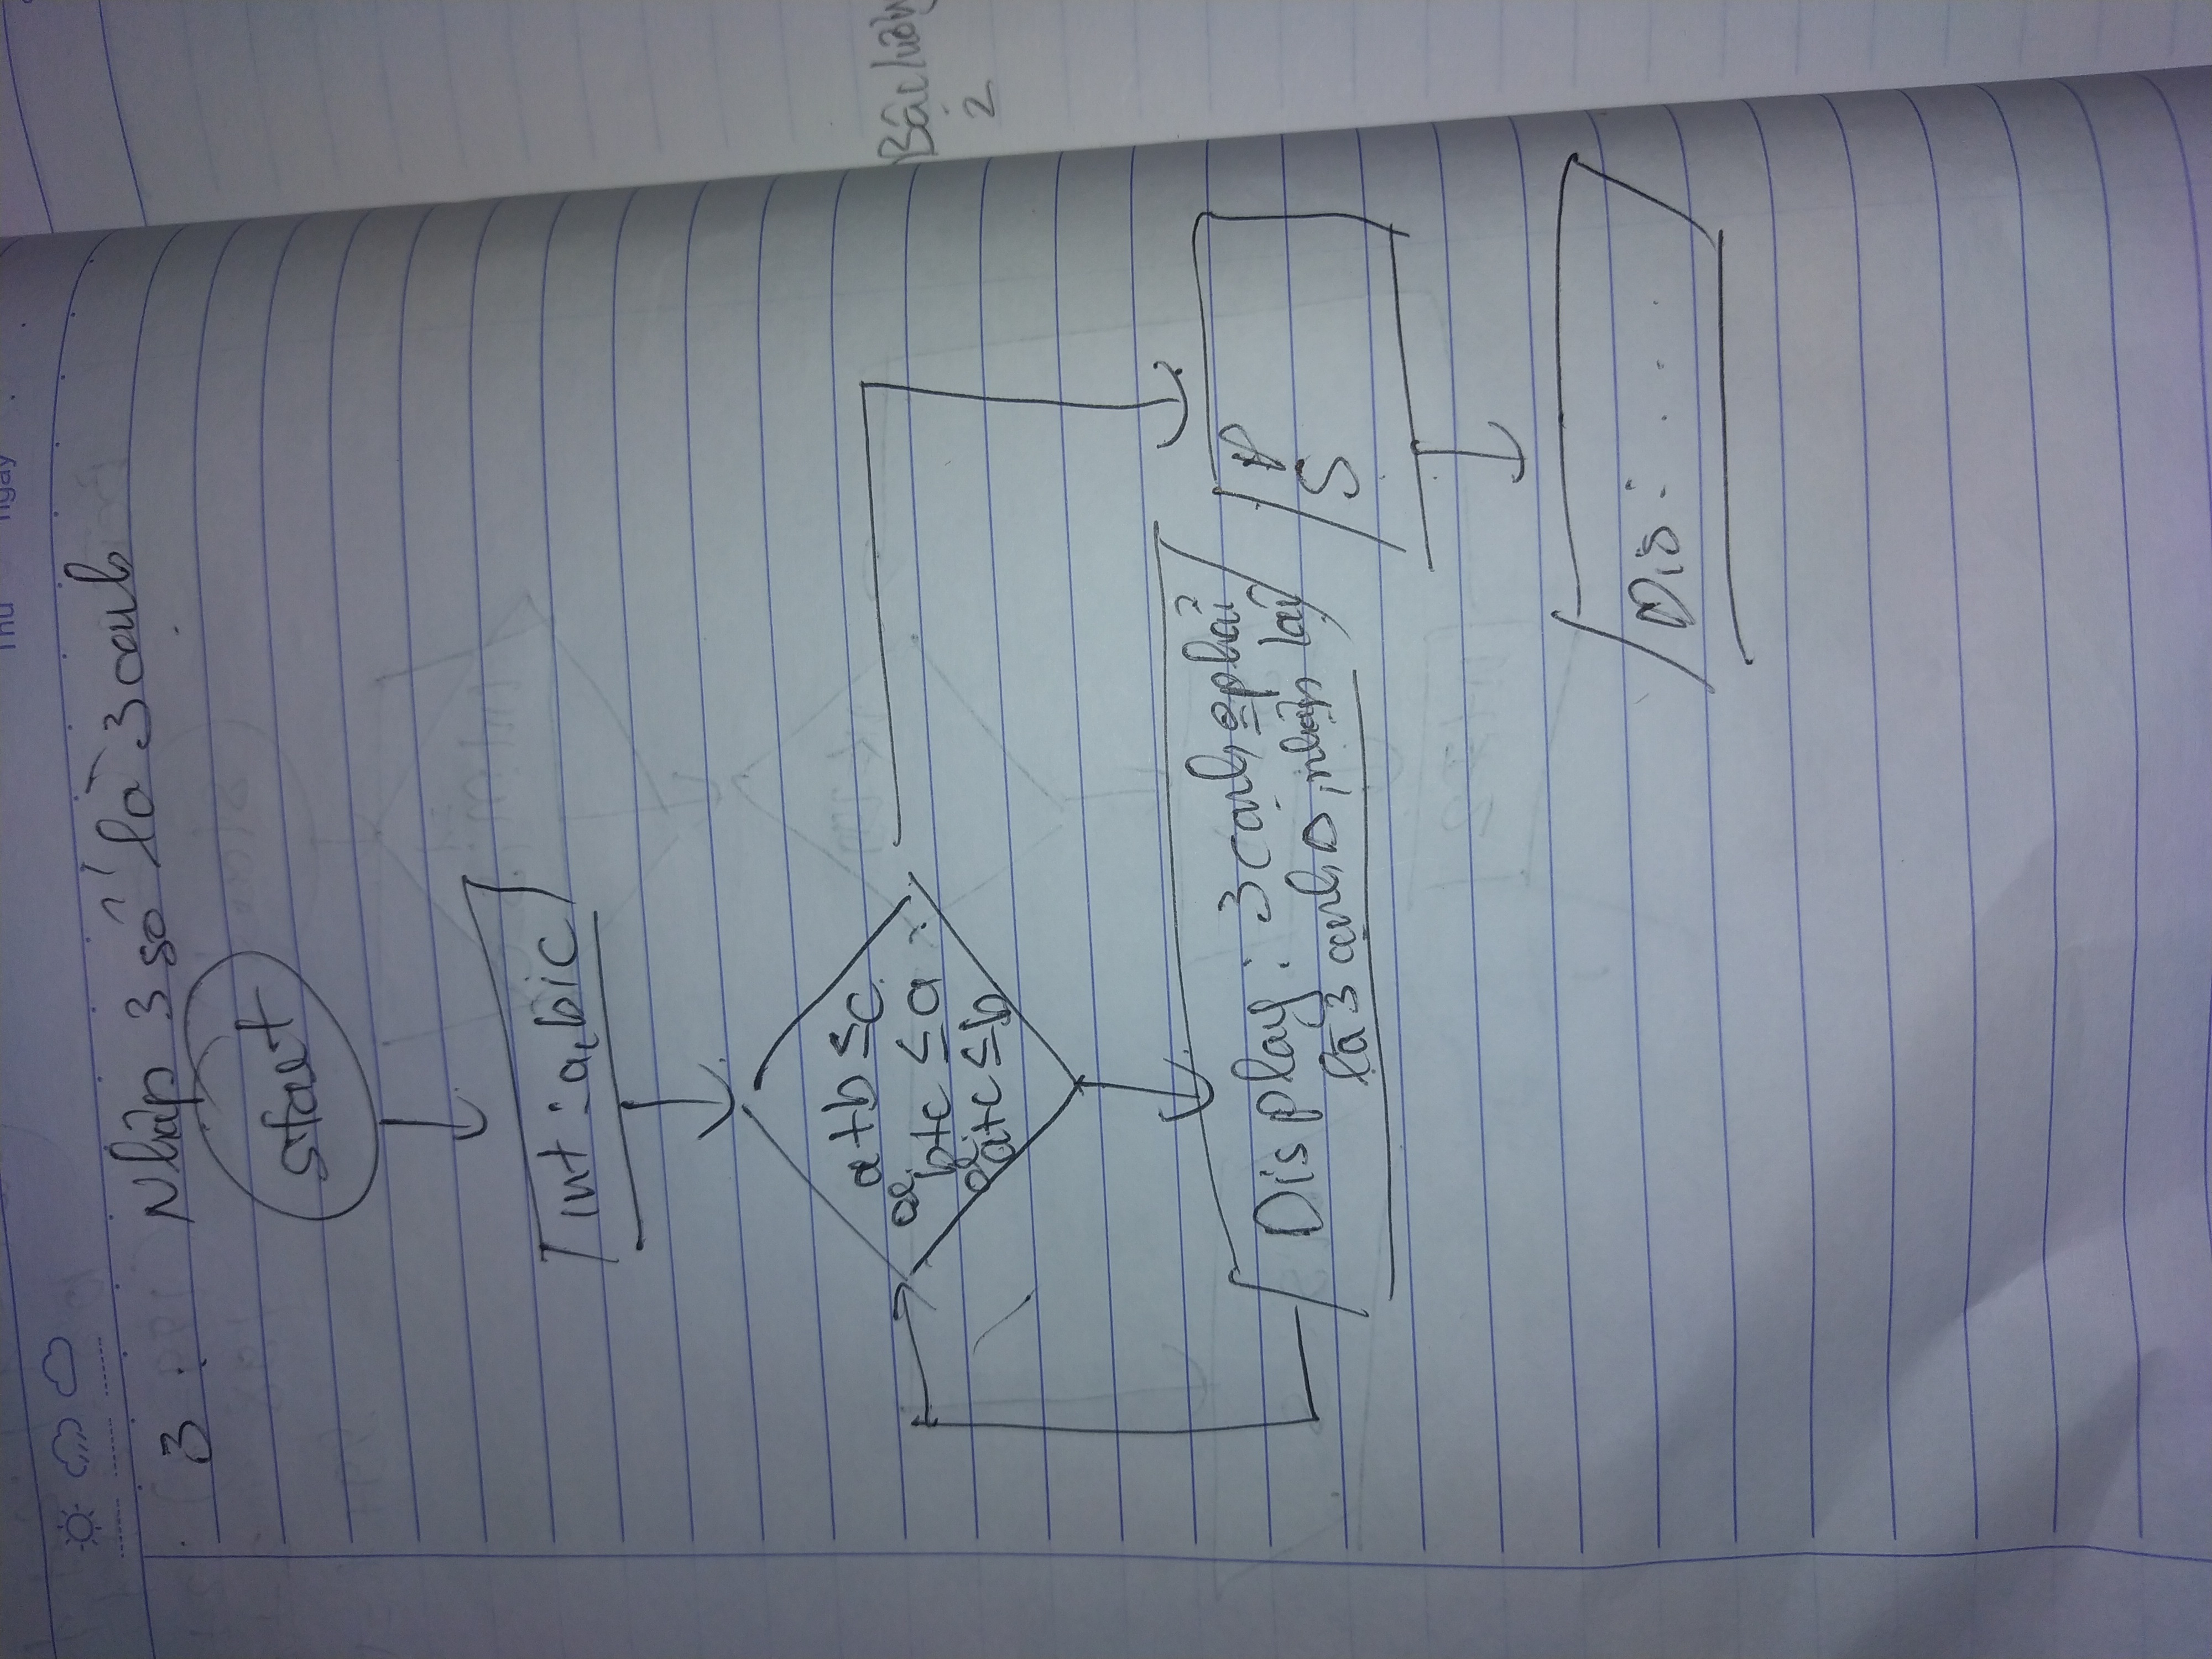 Thứ ngày
3 : Nhập 3 số là 3 cạnh
Start
int : a, b, c
a+b ≤ c
or
b+c ≤ a
or
a+c ≤ b
Display : 3 cạnh phải
là 3 cạnh Δ, nhập lại
P
S
Dis : . . .
Bậc lương
2